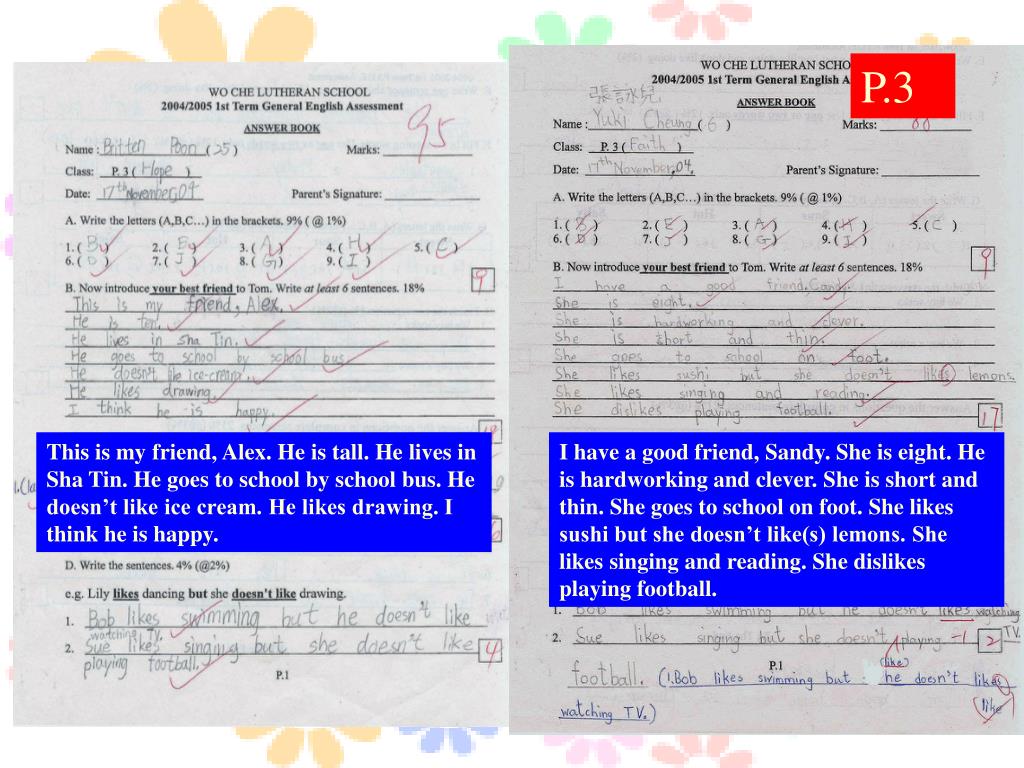 WO CHE LUTHERAN SCHOOL
2004/2005 1st Term General English Assessment
ANSWER BOOK
95
Name : Britten Poon (35)
Marks:
Class: P. 3 ( Hope )
Date: 17th November,04
Parent's Signature:
A. Write the letters (A,B,C…) in the brackets. 9% ( @ 1%)
1. ( B ) 2. ( E ) 3. ( A ) 4. ( H ) 5. ( C )
6. ( D ) 7. ( J ) 8. ( G ) 9. ( I )
9
B. Now introduce your best friend to Tom. Write at least 6 sentences. 18%
This is my friend, Alex.
He is ten.
He lives in Sha Tin.
He goes to school by school bus.
He doesn't like ice-cream.
He likes drawing.
I think he is happy.
This is my friend, Alex. He is tall. He lives in
Sha Tin. He goes to school by school bus. He
doesn't like ice cream. He likes drawing. I
think he is happy.
D. Write the sentences. 4% (@2%)
e.g. Lily likes dancing but she doesn't like drawing.
1. Bob likes swimming but he doesn't like
watching TV.
2. Sue likes singing but she doesn't like
playing football.
4
P.1
WO CHE LUTHERAN SCHO
2004/2005 1st Term General English A
P.3
ANSWER BOOK
張詠兒
Name : Yuki Cheung ( 6 )
Marks:
Class: P. 3 ( Faith )
Date: 17th November,04.
Parent's Signature:
A. Write the letters (A,B,C…) in the brackets. 9% ( @ 1%)
1. ( B ) 2. ( E ) 3. ( A ) 4. ( H ) 5. ( C )
6. ( D ) 7. ( J ) 8. ( G ) 9. ( I )
9
B. Now introduce your best friend to Tom. Write at least 6 sentences. 18%
I have a good friend, Candy.
She is eight.
She is hardworking and clever.
She is short and thin.
She goes to school on foot.
She likes sushi but she doesn't likes lemons.
She likes singing and reading.
She dislikes playing football.
17
I have a good friend, Sandy. She is eight. He
is hardworking and clever. She is short and
thin. She goes to school on foot. She likes
sushi but she doesn't like(s) lemons. She
likes singing and reading. She dislikes
playing football.
1. Bob likes swimming but he doesn't likes watching
TV.
2. Sue likes singing but she doesn't playing -1
2
(like)
P.1
football. (1.Bob likes swimming but he doesn't likes
like
watching TV.)